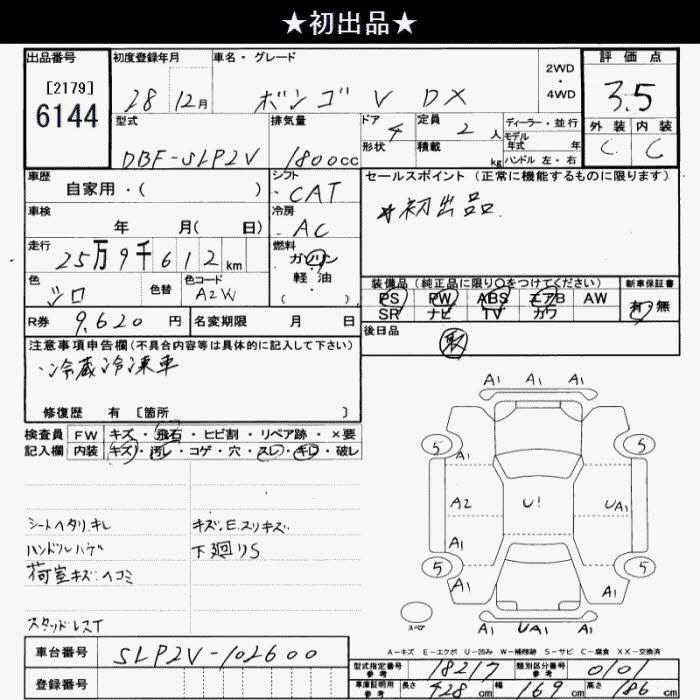 ★初出品★
出品番号 初度登録年月 車名・グレード 2WD・4WD 評価点
[2179]
6144
28 12月 ボンゴ V DX 3.5
型式 排気量 ドア 4 定員 2人 ディーラー・並行 外装 内装
形状 積載 kg モデル年式 年 C C
DBF-SLP2V 1800cc ハンドル 左・右
車歴 シフト セールスポイント(正常に機能するものに限ります)
自家用・( ) ・CAT
*初出品.
車検 冷房
年 月( 日) ・AC
走行 燃料
25万9千612km ガソリン
軽油
( )
色 色替 色コード 装備品(純正品に限り○をつけてください) 新車保証書
シロ A2W PS PW ABS エアB AW 有・無
SR ナビ TV カワ
R券 9,620円 名変期限 月 日 後日品
取
注意事項申告欄(不具合内容等は具体的に記入して下さい)
・冷蔵冷凍車
修復歴 有 [箇所 ]
検査員 FW キズ・飛石・ヒビ割・リペア跡・×要
記入欄 内装 キズ・汚レ・コゲ・穴・スレ・キレ・破レ
シートヘタリ.キレ キズ.E.スリキズ
ハンドルハゲ 下廻りS
荷室キズ.ヘコミ
スタッドレスT
A1 A1 A1
5 A1 5
A2 U! UA1
A1
5 A1 A1 5
スペア A1 UA1 A1
A-キズ E-エクボ U-凹み W-補修跡 S-サビ C-腐食 XX-交換済
車台番号 SLP2V-102600 型式指定番号 参考 18217 類別区分番号 参考 0101
登録番号 車庫証明用 参考 長さ 428cm 幅 169cm 高さ 186cm